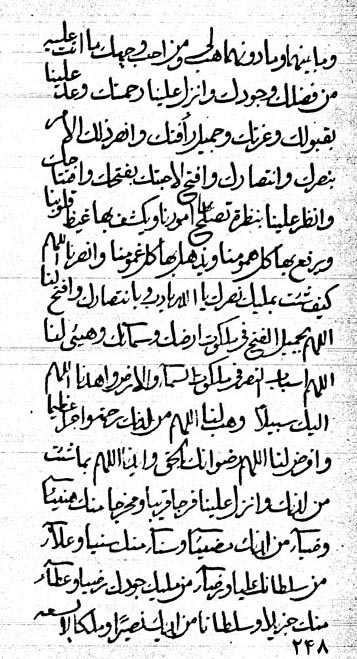 وما بينهما وما دونهما هب لي ومن احب وجهك ما انت عليه
من فضلك وجودك وانزل علينا رحمتك وعد علينا
بقبولك وعزتك وجميل رأفتك وانصر ذلك الامر
بنصرك وانتصارك وافتح لاحبتك بفتحك
وانظر علينا بنظرة تصلح بها امورنا ويكشف بها غيظ قلوبنا
ويرفع بها كل همومنا ويذهل بها كل غمومنا وانصرنا اللهم
كيف شئت بمليك نصرك يا الله يا رب وبانتصارك وافتح لنا
اللهم بجميل الفتح في ملكوت ارضك وسمائك وهيئ لنا
اللهم اسباب النصر في ملكوت السماء والارض واهدنا اللهم
اليك سبيلا وهب لنا اللهم من لدنك
وافرض لنا اللهم رضوانك الحق اللهم بما شئت
من لدنك وانزل علينا فرجا قريبا ومخرجا منك
وضياء من لدنك مضيئا وسناء منك سنيا وعلاء
من سلطانك عليا من مليك جودك رضيا وعطاء
منك جزيلا وسلطانا من لديك نصيرا وملكا
٢٤٨